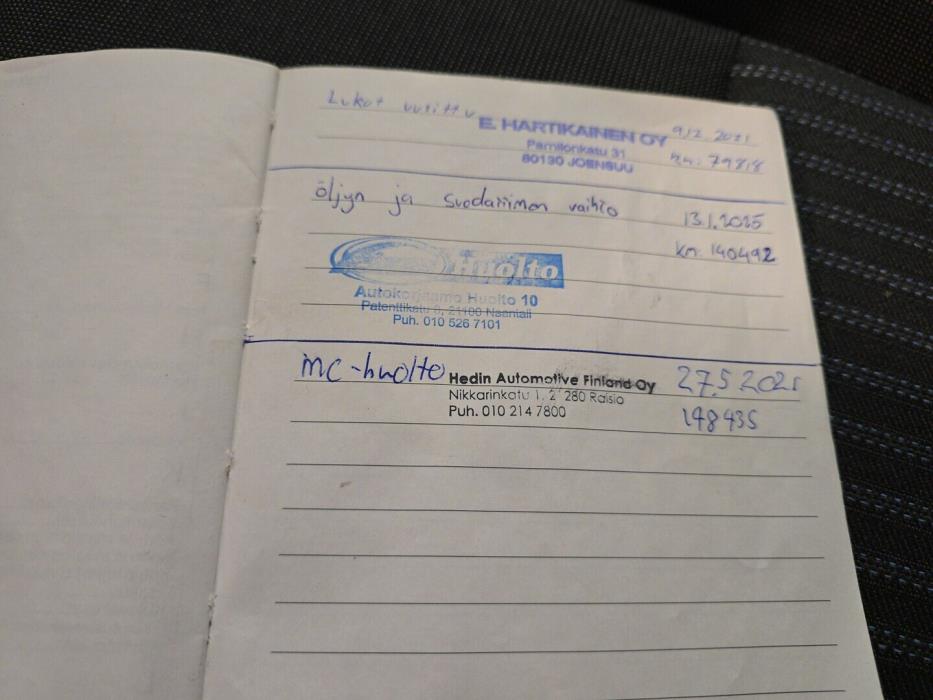 Lukot uusittu
E. HARTIKAINEN OY 9/2 2021
Pamilonkatu 31 km: 79818
80130 JOENSUU
öljyn ja suodattimen vaihto 13.1.2025
km: 140492
Huolto
Autokorjaamo Huolto 10
Patenttikatu 8, 21100 Naantali
Puh. 010 526 7101
MC-huolto Hedin Automotive Finland Oy 27.5 2025
Nikkarinkatu 1, 21280 Raisio 148435
Puh. 010 214 7800